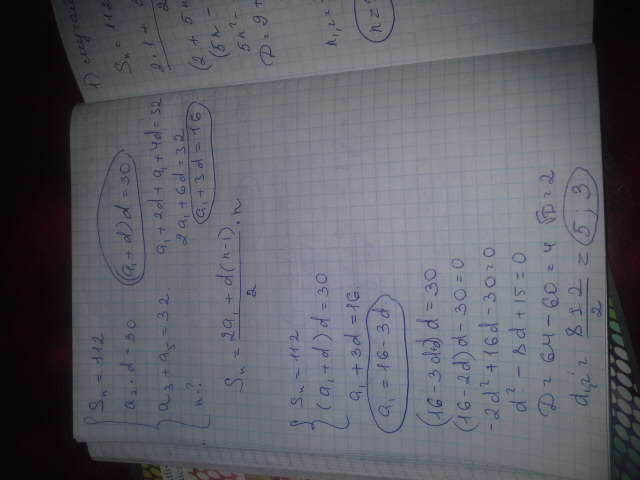 Sₙ = 112
a₂ · d = 30 (a₁ + d) d = 30
a₃ + a₅ = 32 a₁ + 2d + a₁ + 4d = 32
n? 2a₁ + 6d = 32
a₁ + 3d = 16
Sₙ = (2a₁ + d(n-1))/2 · n
Sₙ = 112
(a₁ + d) d = 30
a₁ + 3d = 16
a₁ = 16 - 3d
(16 - 3d+d) d = 30
(16 - 2d) d - 30 = 0
-2d² + 16d - 30 = 0
d² - 8d + 15 = 0
D = 64 - 60 = 4 √D = 2
d₁,₂ = (8 ± 2)/2 = 5, 3
1) случай
Sₙ = 112
2·1 +
2
(2 + 5n
(5n -
5n² -
D = 9 +
n₁,₂ =
n =